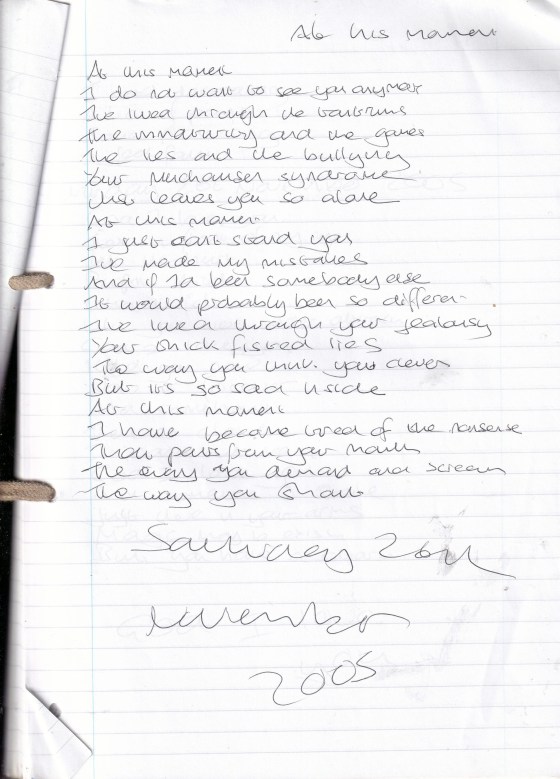 At this moment
At this moment
I do not want to see you anymore
I've lived through the tantrums
The immaturity and the games
The lies and the bullying
Your munchausen syndrome
That leaves you so alone
At this moment
I just can't stand you
I've made my mistakes
And if I'd been somebody else
It would probably been so different
I've lived through your jealousy
Your thick fisted lies
The way you think your clever
But its so sad inside
At this moment
I have become tired of the nonsense
That pours from your mouth
The way you demand and scream
The way you shout
Saturday 20th
November
2005